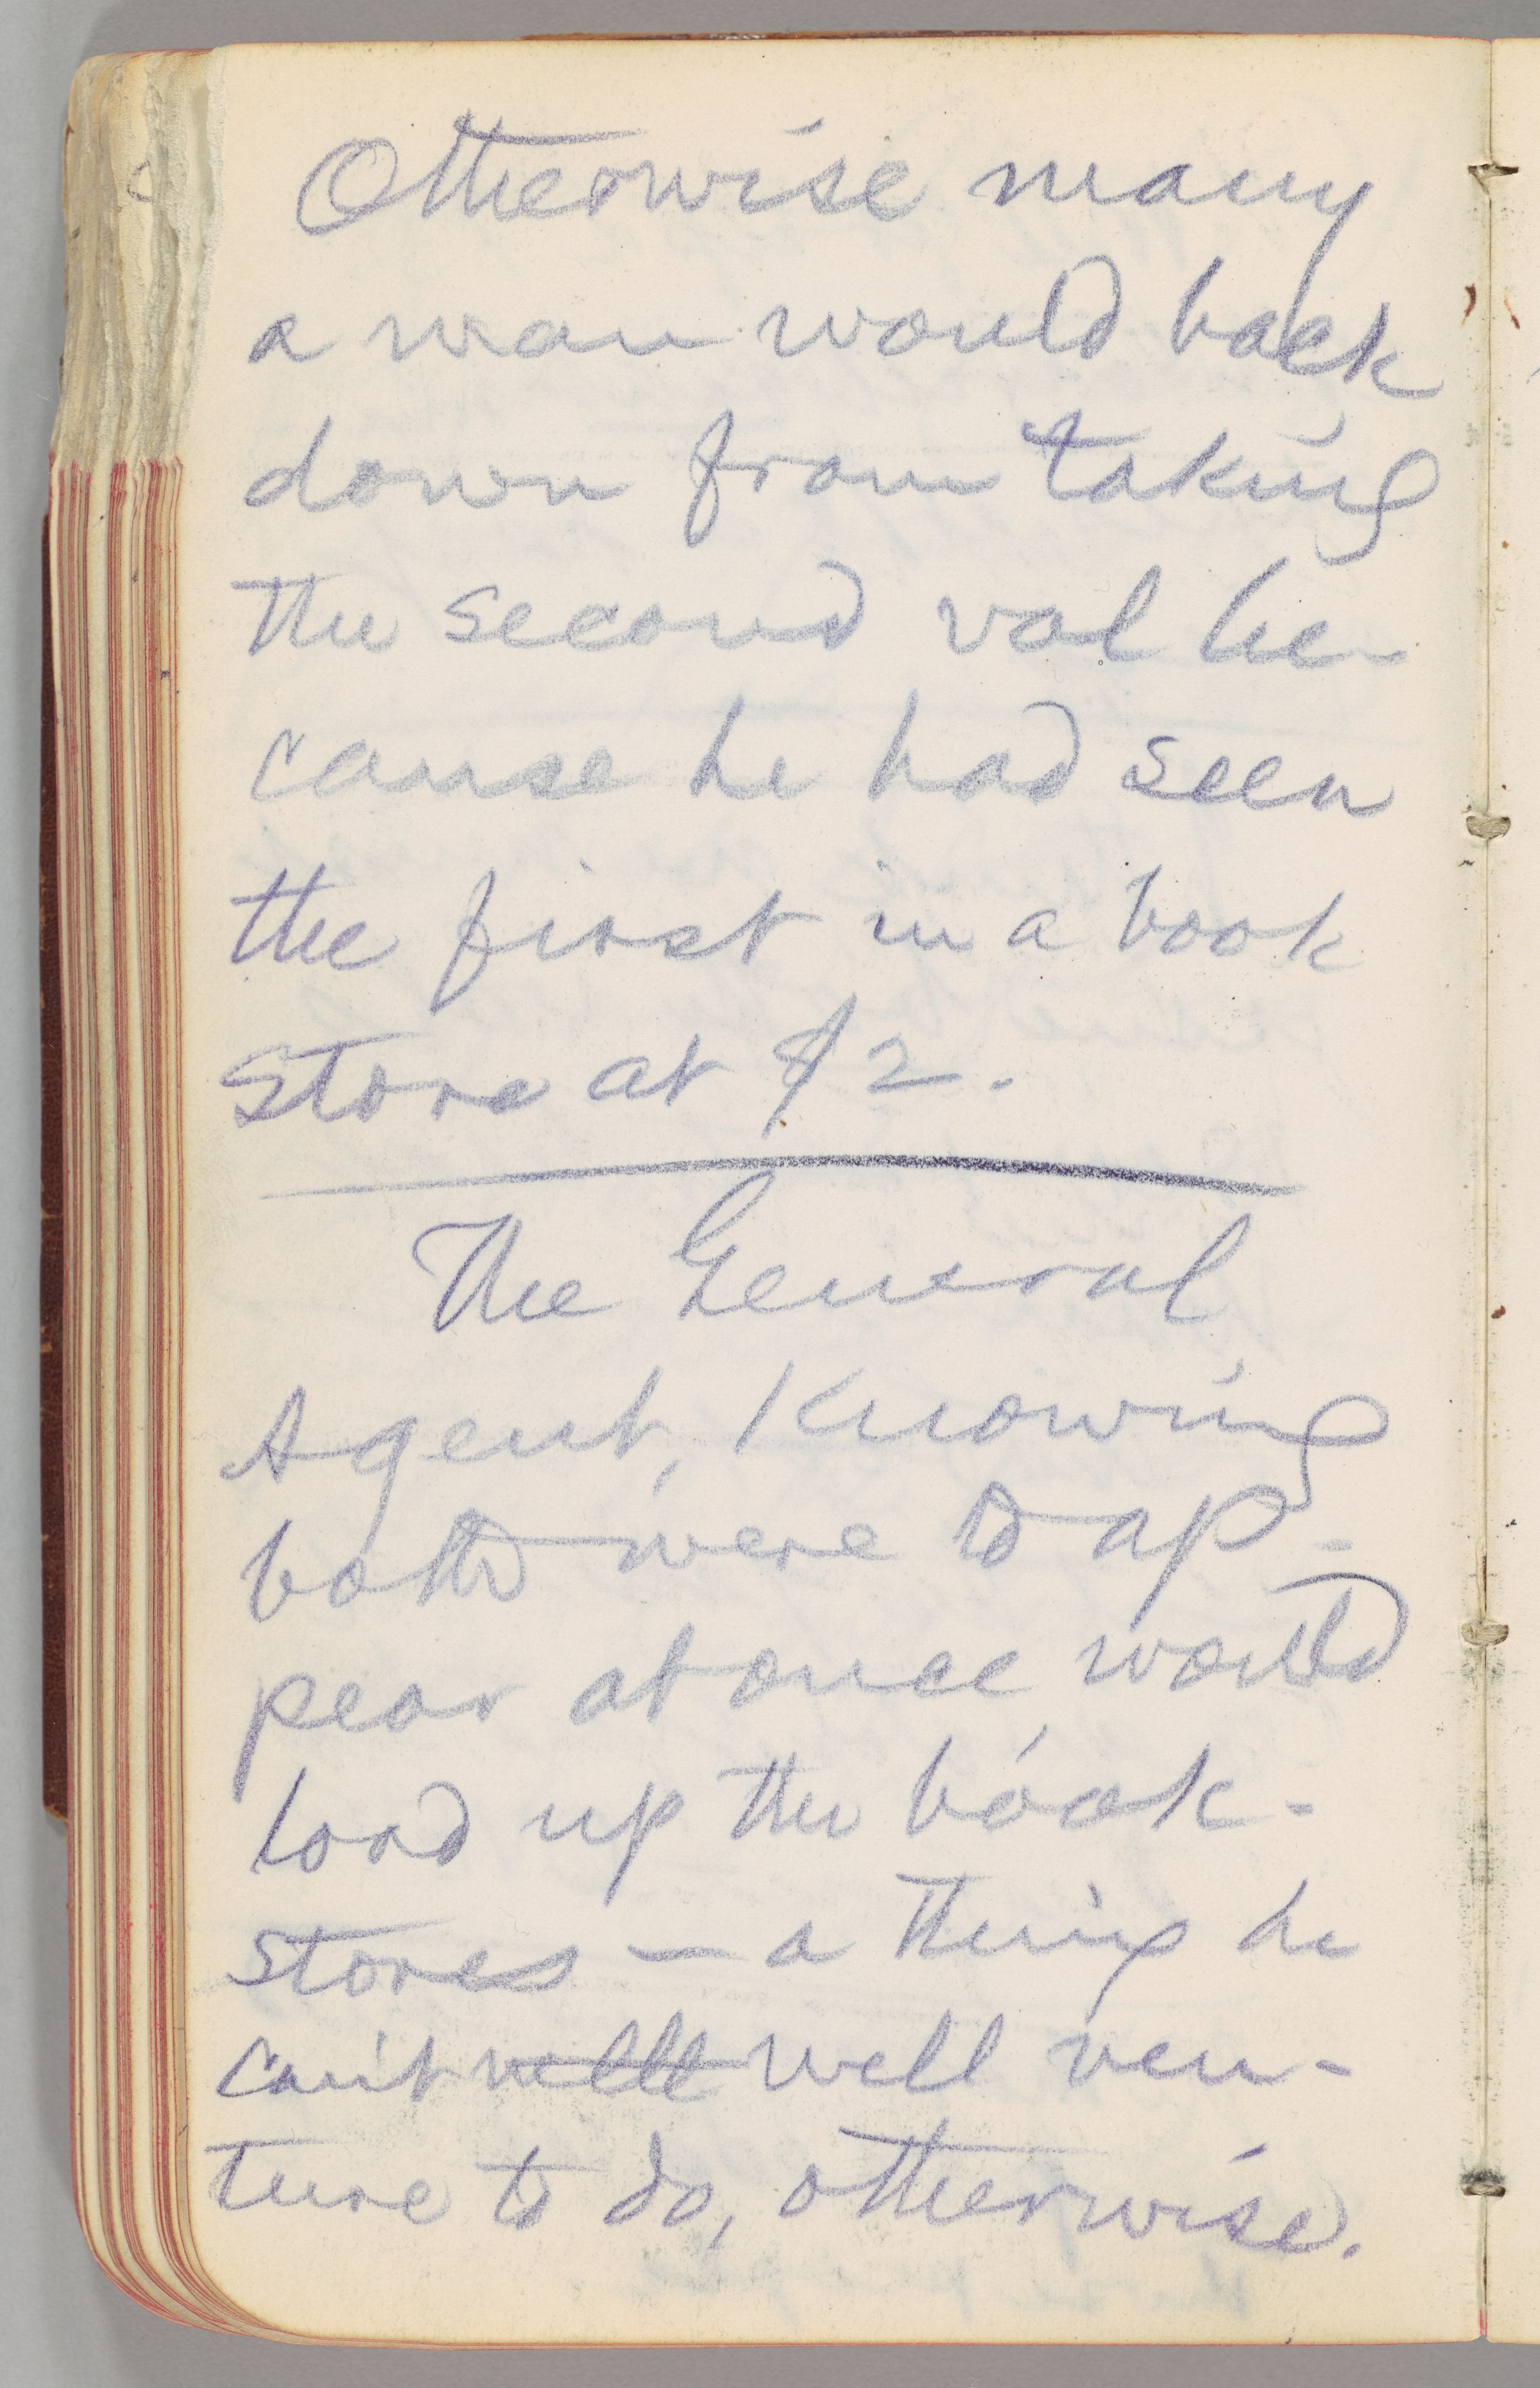 Otherwise many
a man would back
down from taking
the second vol be-
cause he had seen
the first in a book
store at $2.
The General
Agent, knowing
both were to ap-
pear at once would
load up the book-
stores — a thing he
can't well well ven-
ture to do, otherwise.